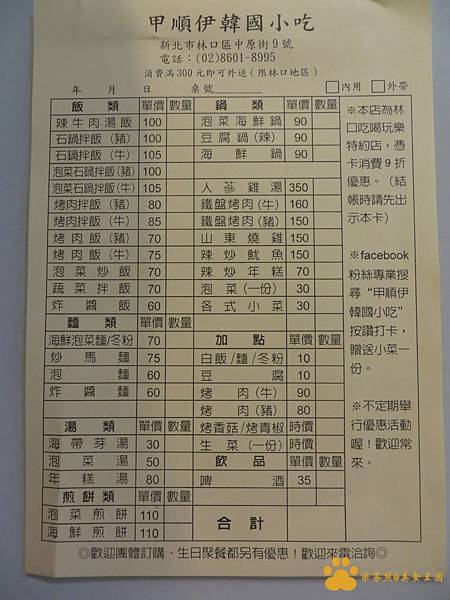 甲順伊韓國小吃
新北市林口區中原街9號
電話：(02)8601-8995
消費滿300元即可外送(限林口地區)
年 月 日 桌號 □內用 □外帶
飯類 單價 數量
辣牛肉湯飯 100
石鍋拌飯(豬) 100
石鍋拌飯(牛) 105
泡菜石鍋拌飯(豬) 100
泡菜石鍋拌飯(牛) 105
烤肉拌飯(豬) 80
烤肉拌飯(牛) 85
烤肉飯(豬) 70
烤肉飯(牛) 75
泡菜炒飯 70
蔬菜拌飯 70
炸醬飯 60
麵類 單價 數量
海鮮泡菜麵/冬粉 70
炒馬麵 75
泡麵 60
炸醬麵 60
湯類 單價 數量
海帶芽湯 30
泡菜湯 50
年糕湯 80
煎餅類 單價 數量
泡菜煎餅 110
海鮮煎餅 110
鍋類 單價 數量
泡菜海鮮鍋 90
豆腐鍋(辣) 90
海鮮鍋 90
人蔘雞湯 350
鐵盤烤肉(牛) 160
鐵盤烤肉(豬) 150
山東燒雞 150
辣炒魷魚 150
辣炒年糕 70
泡菜(一份) 30
各式小菜 30
加點 單價 數量
白飯/麵/冬粉 10
豆腐 10
烤肉(牛) 90
烤肉(豬) 80
烤香菇/烤青椒 時價
生菜(一份) 時價
飲品 單價 數量
啤酒 35
合計
※本店為林
口吃喝玩樂
特約店，憑
卡消費9折
優惠。(結
帳時請先出
示本卡)
※facebook
粉絲專業搜
尋“甲順伊
韓國小吃”
按讚打卡，
贈送小菜一
份。
※不定期舉
行優惠活動
喔！歡迎常
來。
◎歡迎團體訂購、生日聚餐都另有優惠！歡迎來電洽詢◎
米茶熊の美食王國